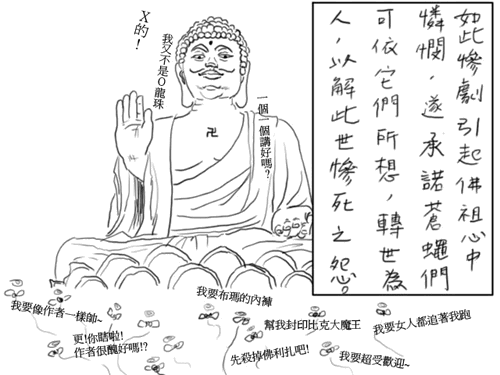 如此慘劇引起佛祖心中
憐憫,遂承諾蒼蠅們
可依它們所想,轉世為
人,以解此世慘死之怨。
X的!
我又不是Q龍珠
一個一個講好嗎?
卍
我要像作者一樣帥~
更!你瞎啦!
作者很醜好嗎!?
我要布瑪的內褲
先殺掉佛利扎吧!
幫我封印比克大魔王
我要超受歡迎~
我要女人都追著我跑